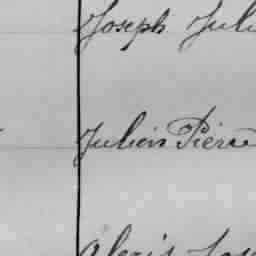 Joseph Juli
Julien Pierre
Alexis Jos